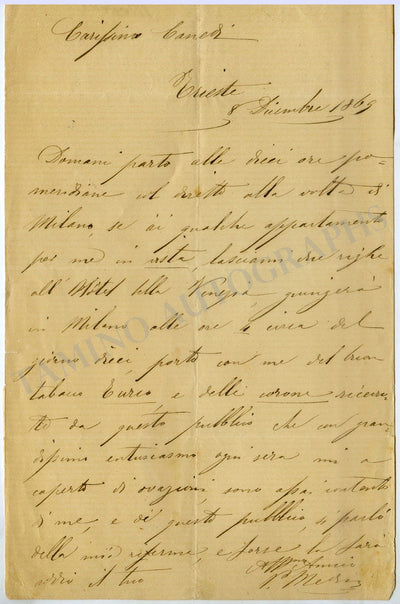 Carissimo Canedi
Trieste
8 Dicembre 1869
Domani parto alle dieci ore po-
meridiane col diretto alla volta di
Milano, se ài qualche appartamento
per me in vista, lasciami due righe
all' Hôtel della Venezia giungerò
in Milano alle ore 4 circa del
giorno dieci, porto con me del buon
tabacco Turco, e delle corone ricevu-
te da questo pubblico che con gran-
dissimo entusiasmo ogni sera mi a
coperto di ovazioni, sono assai contento
di me, e di questo pubblico, si parlò
della mia riferme, e forse la farò
addio il tuo
Amico
TAMINO AUTOGRAPHS